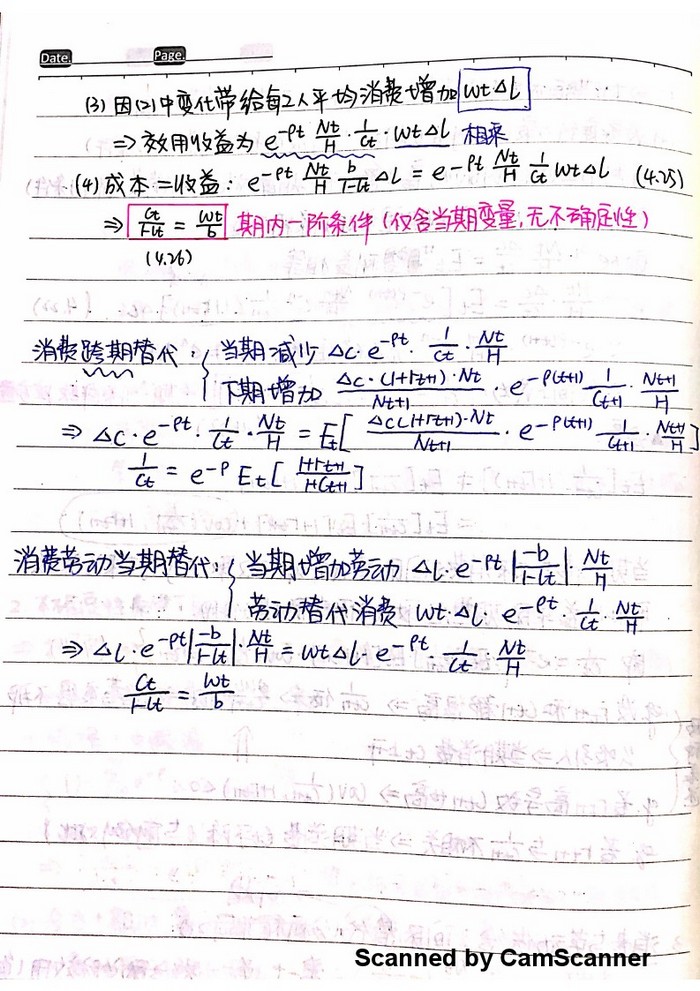 Date. Page.
(3) 因(2)中变化带给每个人平均消费增加 wtΔl
⇒ 效用收益为 e^{-ρt} Nt/H · 1/Ct · wtΔl 相乘
(4) 成本=收益: e^{-ρt} Nt/H b/(1-lt) Δl = e^{-ρt} Nt/H 1/Ct wtΔl (4.25)
⇒ Ct/(1-lt) = wt/b 期内一阶条件 (仅含当期变量,无不确定性)
(4.26)
消费跨期替代: { 当期减少 Δc·e^{-ρt}· 1/Ct · Nt/H
下期增加 Δc·(1+rt+1)·Nt/Nt+1 · e^{-ρ(t+1)} 1/Ct+1 · Nt+1/H
⇒ Δc·e^{-ρt}· 1/Ct · Nt/H = Et[ Δc(1+rt+1)·Nt/Nt+1 · e^{-ρ(t+1)} 1/Ct+1 · Nt+1/H ]
1/Ct = e^{-ρ} Et[ 1+rt+1/1+Ct+1 ]
消费劳动当期替代: { 当期增加劳动 Δl·e^{-ρt}·|-b/(1-lt)|· Nt/H
劳动替代消费 wt·Δl· e^{-ρt}· 1/Ct · Nt/H
⇒ Δl·e^{-ρt}|-b/(1-lt)|· Nt/H = wtΔl·e^{-ρt}· 1/Ct · Nt/H
Ct/(1-lt) = wt/b
Scanned by CamScanner